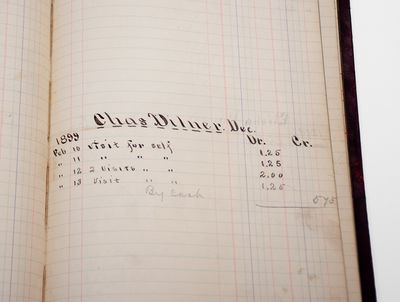 Chas Dilner. Dec.
1899 Dr. Cr.
Feb 10 visit for self 1.25
" 11 " " " 1.25
" 12 2 visits " " 2.00
" 13 Visit " " 1.25
By cash 575